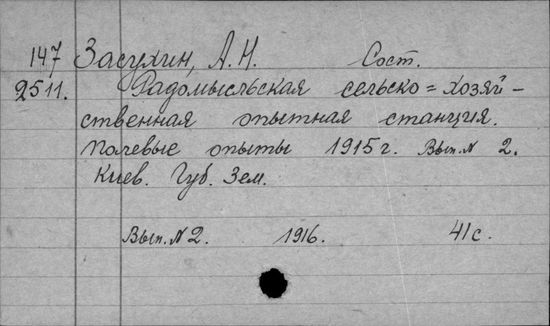 147 Засухин, А. Н. Сост.
2511. Радомысльская сельско=хозяй-
ственная опытная станция.
Полевые опыты 1915 г. Вып. N 2.
Киев. Губ. Зем.
Вып. N 2. 1916. 41 с.